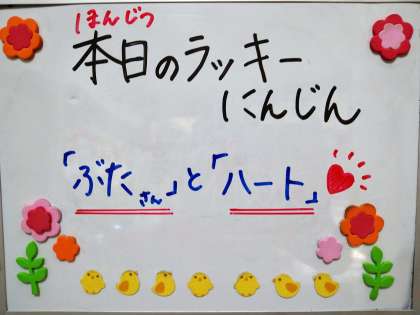 ほんじつ
本日のラッキー
にんじん
「ぶたさん」と「ハート」